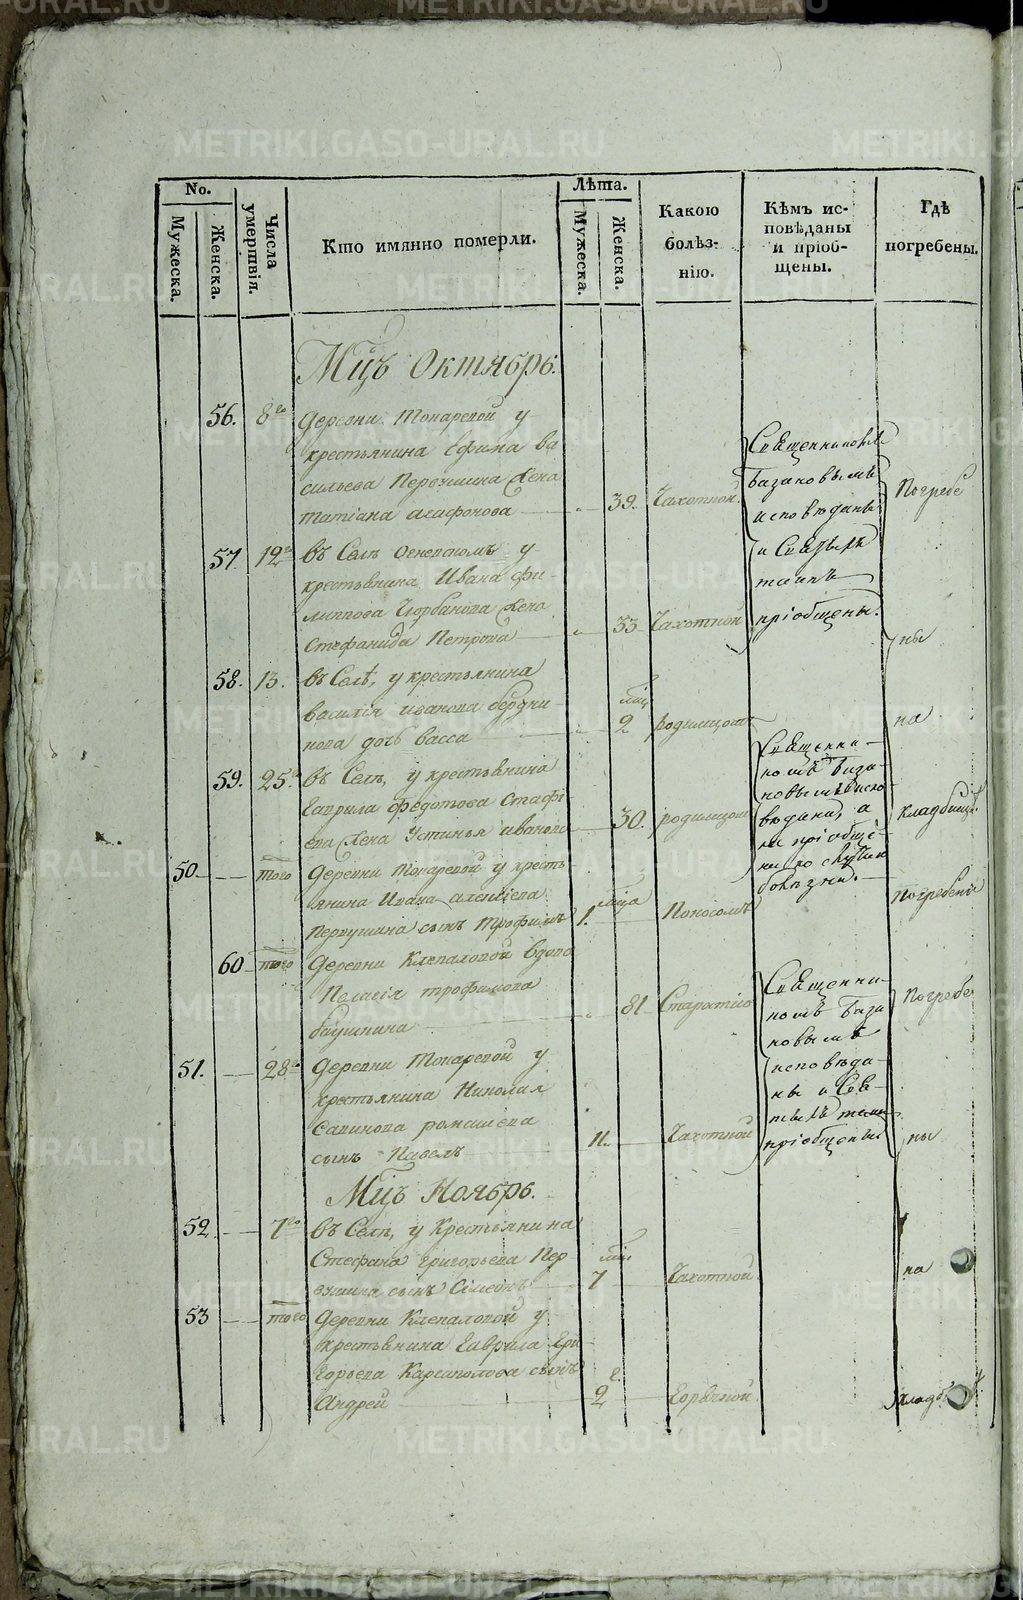 No.
Мужеска.
Женска.
Числа умертвія.
Кто имянно померли.
Лѣта.
Мужеска.
Женска.
Какою болѣз-
нію.
Кѣмъ ис-
повѣданы
и пріоб-
щены.
Гдѣ
погребены.
Мцъ Октябрь.
56. 8го Деревни Токаревой у
крестьянина Ефима Ва
сильева Первушина жена
Татіана Агафонова 39. Чахоткой
Священникомъ
Базановымъ
исповѣданы
и Святыхъ
таинъ
пріобщены.
Погребе
57 12го въ Селѣ Огневскомъ у
крестьянина Ивана Фи-
липпова жена
Стефанида Петрова 33 Чахоткой
ны
58. 13. въ Селѣ, у крестьянина
Василія Иванова Бердни-
кова дочь Васса мцъ 2 родимцомъ
на
59. 25го въ Селѣ, у крестьянина
Гаврила Федотова
жена Устинья Иванова 30. родимцомъ
Священни-
комъ База-
новымъ испо
вѣдана, а
не пріобще-
на по
болѣзни.
кладбищѣ
50. того Деревни Токаревой у кресть
янина Ивана Алексіева
Первушина сынъ Трофимъ 1. мца Поносомъ
Погребены
60 того Деревни Клепаловой вдова
Пелагія Трофимова
81 Старостію
Священни-
комъ База
новымъ
исповѣда-
ны и Свя-
тыхъ таинъ
пріобщены
Погребе
51. 28го Деревни Токаревой у
крестьянина Николая
Савинова
сынъ Павелъ 11. Чахоткой
ны
Мцъ Ноябрь.
52. 7го въ Селѣ, у Крестьянина
Стефана Григорьева Пер
вушина сынъ Сімеонъ мцъ 7 Чахоткой
на
53 того Деревни Клепаловой у
крестьянина Гаврила Гри
горьева Карсаполова сынъ
Андрей 2 Горячкой
кладб
METRIKI.GASO-URAL.RU